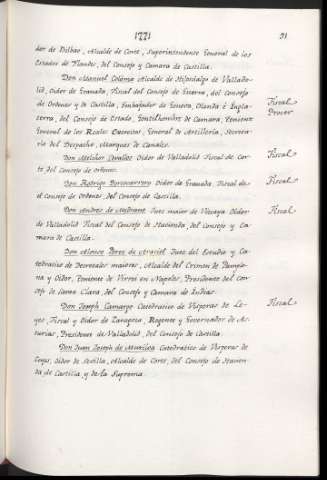 1771 31
dor de Bilbao, Alcalde de Corte, Superintendente General de los
Estados de Flandes, del Consejo y Camara de Castilla.
Don Manuel Coloma Alcalde de Hijosdalgo de Vallado-
lid, Oidor de Granada, Fiscal del Consejo de Guerra, del Consejo
de Ordenes y de Castilla, Embajador de Genova, Olanda é Ingla-
terra, del Consejo de Estado, Gentilhombre de Camara, Teniente
General de los Reales Exercitos, General de Artilleria, Secreta-
rio del Despacho, Marques de Canales.
Fiscal
Don Melchor Cevallos Oidor de Valladolid Fiscal de Cor-
te del Consejo de Ordenes.
Fiscal
Don Rodrigo Fiscal
Oidor de Granada, Fiscal de
el Consejo de Ordenes, del Consejo de Castilla.
Don Andres de Medrano Juez maior de Vizcaya Oidor Fiscal
de Valladolid Fiscal del Consejo de Hacienda, del Consejo y Ca-
mara de Castilla.
Don Alonso Perez de Araciel Juez del Estudio y Ca-
tedratico de Decretales maiores, Alcalde del Crimen de Pamplo-
na y Oidor, Teniente de Virrei en Napoles, Presidente del Con-
sejo de Santa Clara, del Consejo y Camara de Indias.
Don Joseph Camargo Catedratico de Visperas de Le- Fiscal
yes, Fiscal y Oidor de Zaragoza, Regente y Governador de As-
turias, Presidente de Valladolid, del Consejo de Castilla.
Don Juan Joseph de Mutiloa Catedratico de Visperas de
Leyes, Oidor de Sevilla, Alcalde de Corte, del Consejo de Hacien-
da de Castilla y de la Suprema.